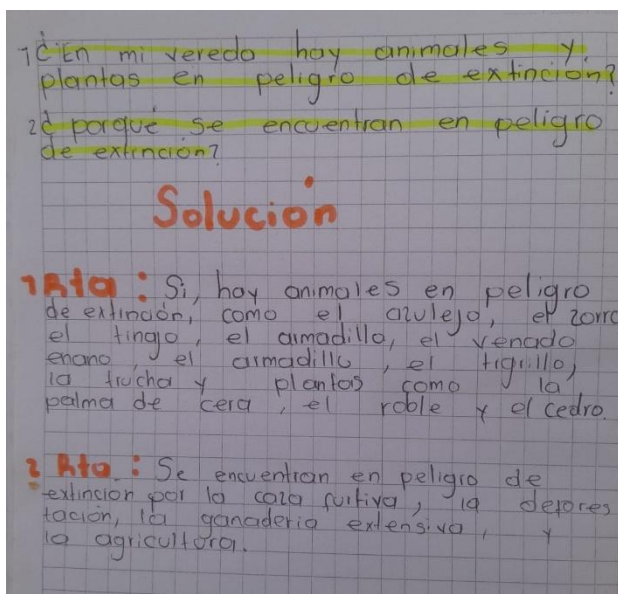 1 ¿En mi vereda hay animales y
plantas en peligro de extinción?
2 ¿porqué se encuentran en peligro
de extinción?
Solución
1 Rta: Si, hay animales en peligro
de extinción, como el azulejo, el zorro
el tingo, el armadillo, el venado
enano, el armadillo, el tigrillo,
la trucha y plantas como la
palma de cera, el roble y el cedro.
2 Rta: Se encuentran en peligro de
extincion por la caza furtiva, la defores
tación, la ganaderia extensiva, y
la agricultura.